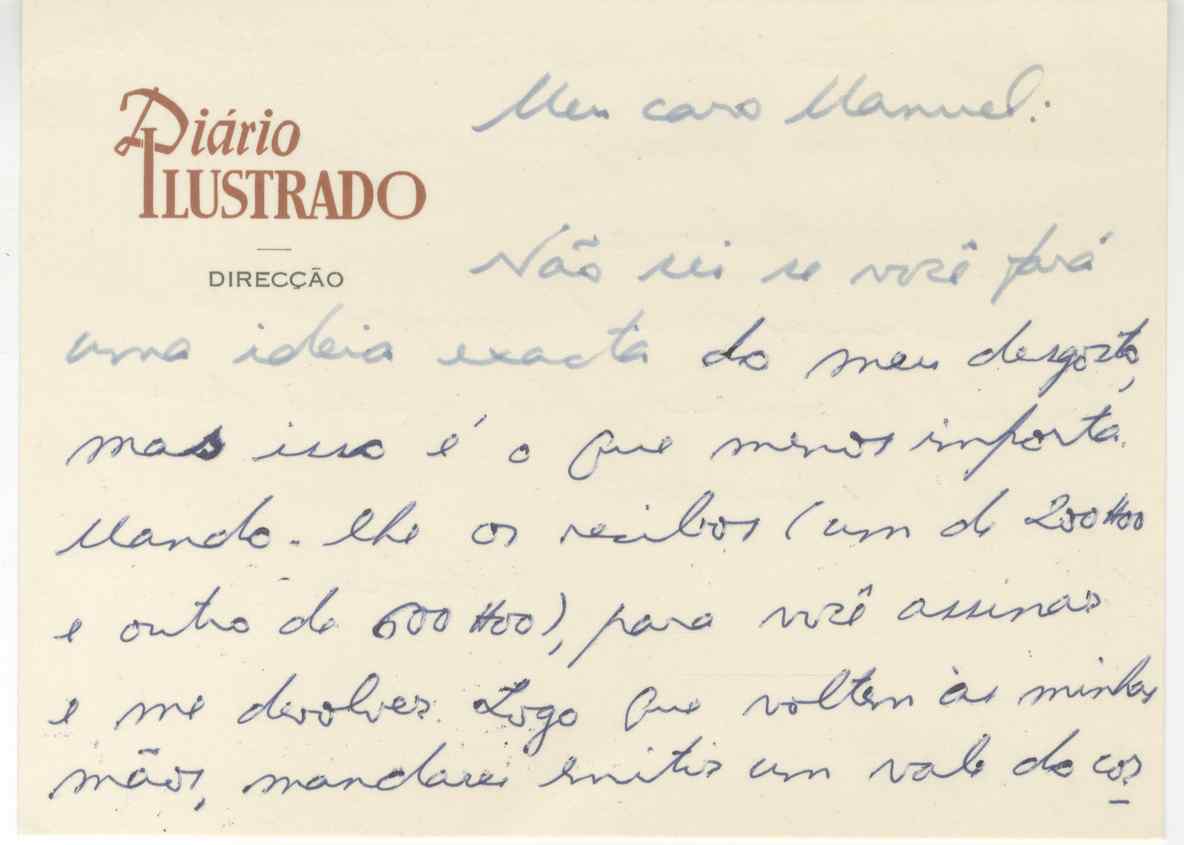 Diário
ILUSTRADO
DIRECÇÃO
Meu caro Manuel:
Não sei se você fará
uma ideia exacta do meu desgosto,
mas isso é o que menos importa.
Mando-lhe os recibos (um de 200$00
e outro de 600$00), para você assinar
e me devolver. Logo que voltem às minhas
mãos, mandarei emitir um vale do cor